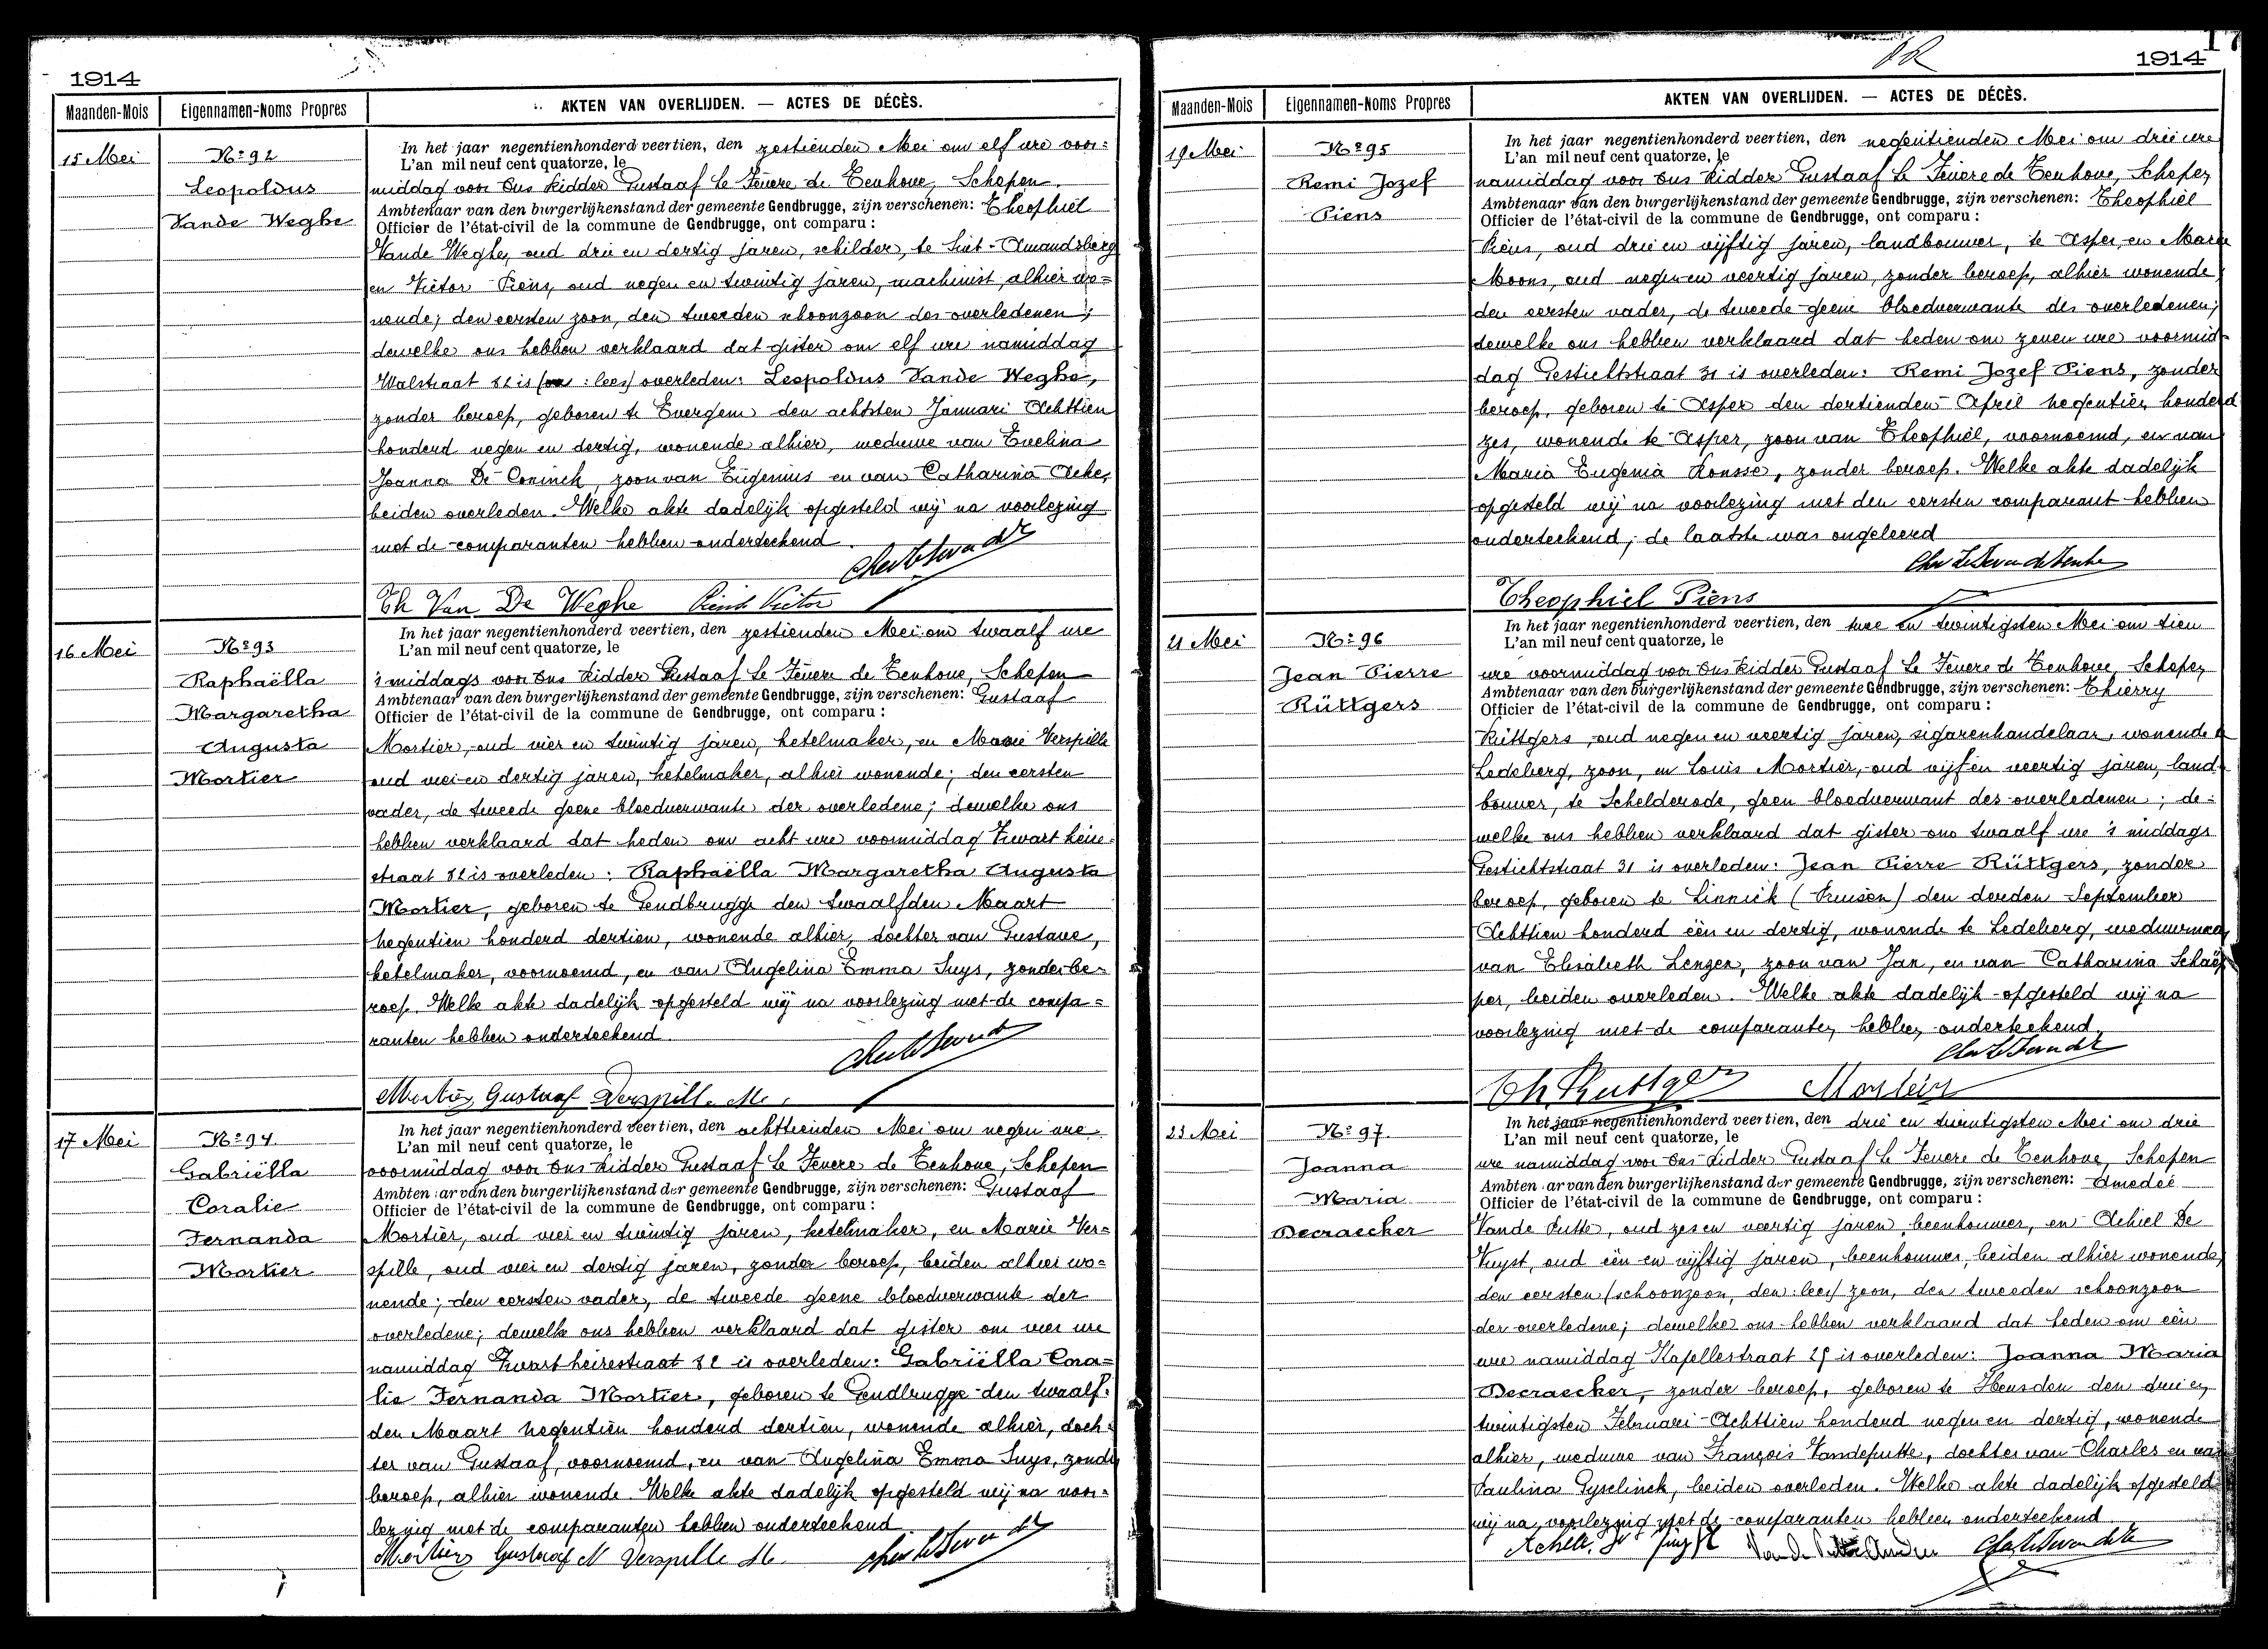 1914
Maanden-Mois Eigennamen-Noms Propres AKTEN VAN OVERLIJDEN. — ACTES DE DÉCÈS.
15 Mei
No 92
Leopoldus
Vande Weghe
In het jaar negentienhonderd veertien, den zestienden Mei om elf ure voor=
L'an mil neuf cent quatorze, le
middag voor Ons Ridder Gustaaf Le Fevere de Tenhove, Schepen
Ambtenaar van den burgerlijkenstand der gemeente Gendbrugge, zijn verschenen: Theophiel
Officier de l'état-civil de la commune de Gendbrugge, ont comparu :
Vande Weghe, oud drie en dertig jaren, schilder, te Sint-Amandsberg
en Victor Piens, oud negen en twintig jaren, machinist, alhier wo=
nende; den eersten zoon, den tweeden schoonzoon des overledenen;
dewelke ons hebben verklaard dat gister om elf ure namiddag
Walstraat is : lees) overleden: Leopoldus Vande Weghe,
zonder beroep, geboren te Evergem den achtsten Januari Achttien
honderd negen en dertig, wonende alhier, weduwe van Evelina
Joanna De Coninck, zoon van Eugenius en van Catharina Acke,
beiden overleden. Welke akte dadelijk opgesteld wij na voorlezing
met de comparanten hebben onderteekend
Th Van De Weghe Piens Victor
16 Mei
No 93
Raphaëlla
Margaretha
Augusta
Mortier
In het jaar negentienhonderd veertien, den zestienden Mei om twaalf ure
L'an mil neuf cent quatorze, le
's middags voor Ons Ridder Gustaaf Le Fevere de Tenhove, Schepen
Ambtenaar van den burgerlijkenstand der gemeente Gendbrugge, zijn verschenen: Gustaaf
Officier de l'état-civil de la commune de Gendbrugge, ont comparu :
Mortier, oud vier en twintig jaren, ketelmaker, en Marie Verspille
oud vier en dertig jaren, ketelmaker, alhier wonende; den eersten
vader, de tweede geene bloedverwante der overledene; dewelke ons
hebben verklaard dat heden om acht ure voormiddag Zwart heire=
straat is overleden: Raphaëlla Margaretha Augusta
Mortier, geboren te Gendbrugge den twaalfden Maart
Negentien honderd dertien, wonende alhier, dochter van Gustave,
ketelmaker, voornoemd, en van Angelina Emma Suys, zonder be=
roep. Welke akte dadelijk opgesteld wij na voorlezing met de compa=
ranten hebben onderteekend
Mortier Gustaaf Verspille M.
17 Mei
No 94.
Gabriëlla
Coralie
Fernanda
Mortier
In het jaar negentienhonderd veertien, den achttienden Mei om negen ure
L'an mil neuf cent quatorze, le
voormiddag voor Ons Ridder Gustaaf Le Fevere de Tenhove, Schepen
Ambtenaar van den burgerlijkenstand der gemeente Gendbrugge, zijn verschenen: Gustaaf
Officier de l'état-civil de la commune de Gendbrugge, ont comparu :
Mortier, oud vier en twintig jaren, ketelmaker, en Marie Ver=
spille, oud vier en dertig jaren, zonder beroep, beiden alhier wo=
nende; den eersten vader, de tweede geene bloedverwante der
overledene; dewelke ons hebben verklaard dat gister om vier ure
namiddag Zwart heirestraat is overleden: Gabriëlla Cora=
lie Fernanda Mortier, geboren te Gendbrugge den twaalf=
den Maart Negentien honderd dertien, wonende alhier, doch=
ter van Gustaaf, voornoemd, en van Angelina Emma Suys, zonder
beroep, alhier wonende. Welke akte dadelijk opgesteld wij na voor=
lezing met de comparanten hebben onderteekend
Mortier Gustaaf Verspille M.
1914
Maanden-Mois Eigennamen-Noms Propres AKTEN VAN OVERLIJDEN. — ACTES DE DÉCÈS.
19 Mei
No 95
Remi Jozef
Piens
In het jaar negentienhonderd veertien, den negentienden Mei om drie ure
L'an mil neuf cent quatorze, le
namiddag voor Ons Ridder Gustaaf Le Fevere de Tenhove, Schepen
Ambtenaar van den burgerlijkenstand der gemeente Gendbrugge, zijn verschenen: Theophiel
Officier de l'état-civil de la commune de Gendbrugge, ont comparu :
Piens, oud drie en vijftig jaren, landbouwer, te Asper, en Marie
Moons, oud negen en veertig jaren, zonder beroep, alhier wonende
den eersten vader, de tweede geene bloedverwante des overledenen;
dewelke ons hebben verklaard dat heden om zeven ure voormid=
dag Gestichtstraat 31 is overleden: Remi Jozef Piens, zonder
beroep, geboren te Asper den dertienden April Negentien honderd
zes, wonende te Asper, zoon van Theophiel, voornoemd, en van
Maria Eugenia Ronsse, zonder beroep. Welke akte dadelijk
opgesteld wij na voorlezing met den eersten comparant hebben
onderteekend; de laatste was ongeleerd
Theophiel Piens
21 Mei
No 96
Jean Pierre
Rüttgers
In het jaar negentienhonderd veertien, den twee en twintigsten Mei om tien
L'an mil neuf cent quatorze, le
ure voormiddag voor Ons Ridder Gustaaf Le Fevere de Tenhove, Schepen
Ambtenaar van den burgerlijkenstand der gemeente Gendbrugge, zijn verschenen: Thierry
Officier de l'état-civil de la commune de Gendbrugge, ont comparu :
Rüttgers, oud negen en veertig jaren, sigarenhandelaar, wonende te
Ledeberg, zoon, en Louis Mortier, oud vijf en veertig jaren, land=
bouwer, te Schelderode, geen bloedverwant des overledenen; de=
welke ons hebben verklaard dat gister om twaalf ure 's middags
Gestichtstraat 31 is overleden: Jean Pierre Rüttgers, zonder
beroep, geboren te Linnick (Pruisen) den derden September
Achttien honderd één en dertig, wonende te Ledeberg, weduwnaar
van Elisabeth Lenzen, zoon van Jan, en van Catharina Schaep=
per, beiden overleden. Welke akte dadelijk opgesteld wij na
voorlezing met de comparanten hebben onderteekend
Th. Ruttgers Mortier
23 Mei
No 97.
Joanna
Maria
Decraecker
In het jaar negentienhonderd veertien, den drie en twintigsten Mei om drie
L'an mil neuf cent quatorze, le
ure namiddag voor Ons Ridder Gustaaf Le Fevere de Tenhove, Schepen
Ambtenaar van den burgerlijkenstand der gemeente Gendbrugge, zijn verschenen: Amedeé
Officier de l'état-civil de la commune de Gendbrugge, ont comparu :
Vande Putte, oud zes en veertig jaren, beenhouwer, en Achiel De
Vuyst, oud één en vijftig jaren, beenhouwer, beiden alhier wonende,
den eersten (schoonzoon, den : lees) zoon, den tweeden schoonzoon
der overledene; dewelke ons hebben verklaard dat heden om één
ure namiddag Kapellestraat is overleden: Joanna Maria
Decraecker, zonder beroep, geboren te Heusden den drie en
twintigsten Februari Achttien honderd negen en dertig, wonende
alhier, weduwe van François Vandeputte, dochter van Charles en van
Paulina Gyselinck, beiden overleden. Welke akte dadelijk opgesteld
wij na voorlezing met de comparanten hebben onderteekend